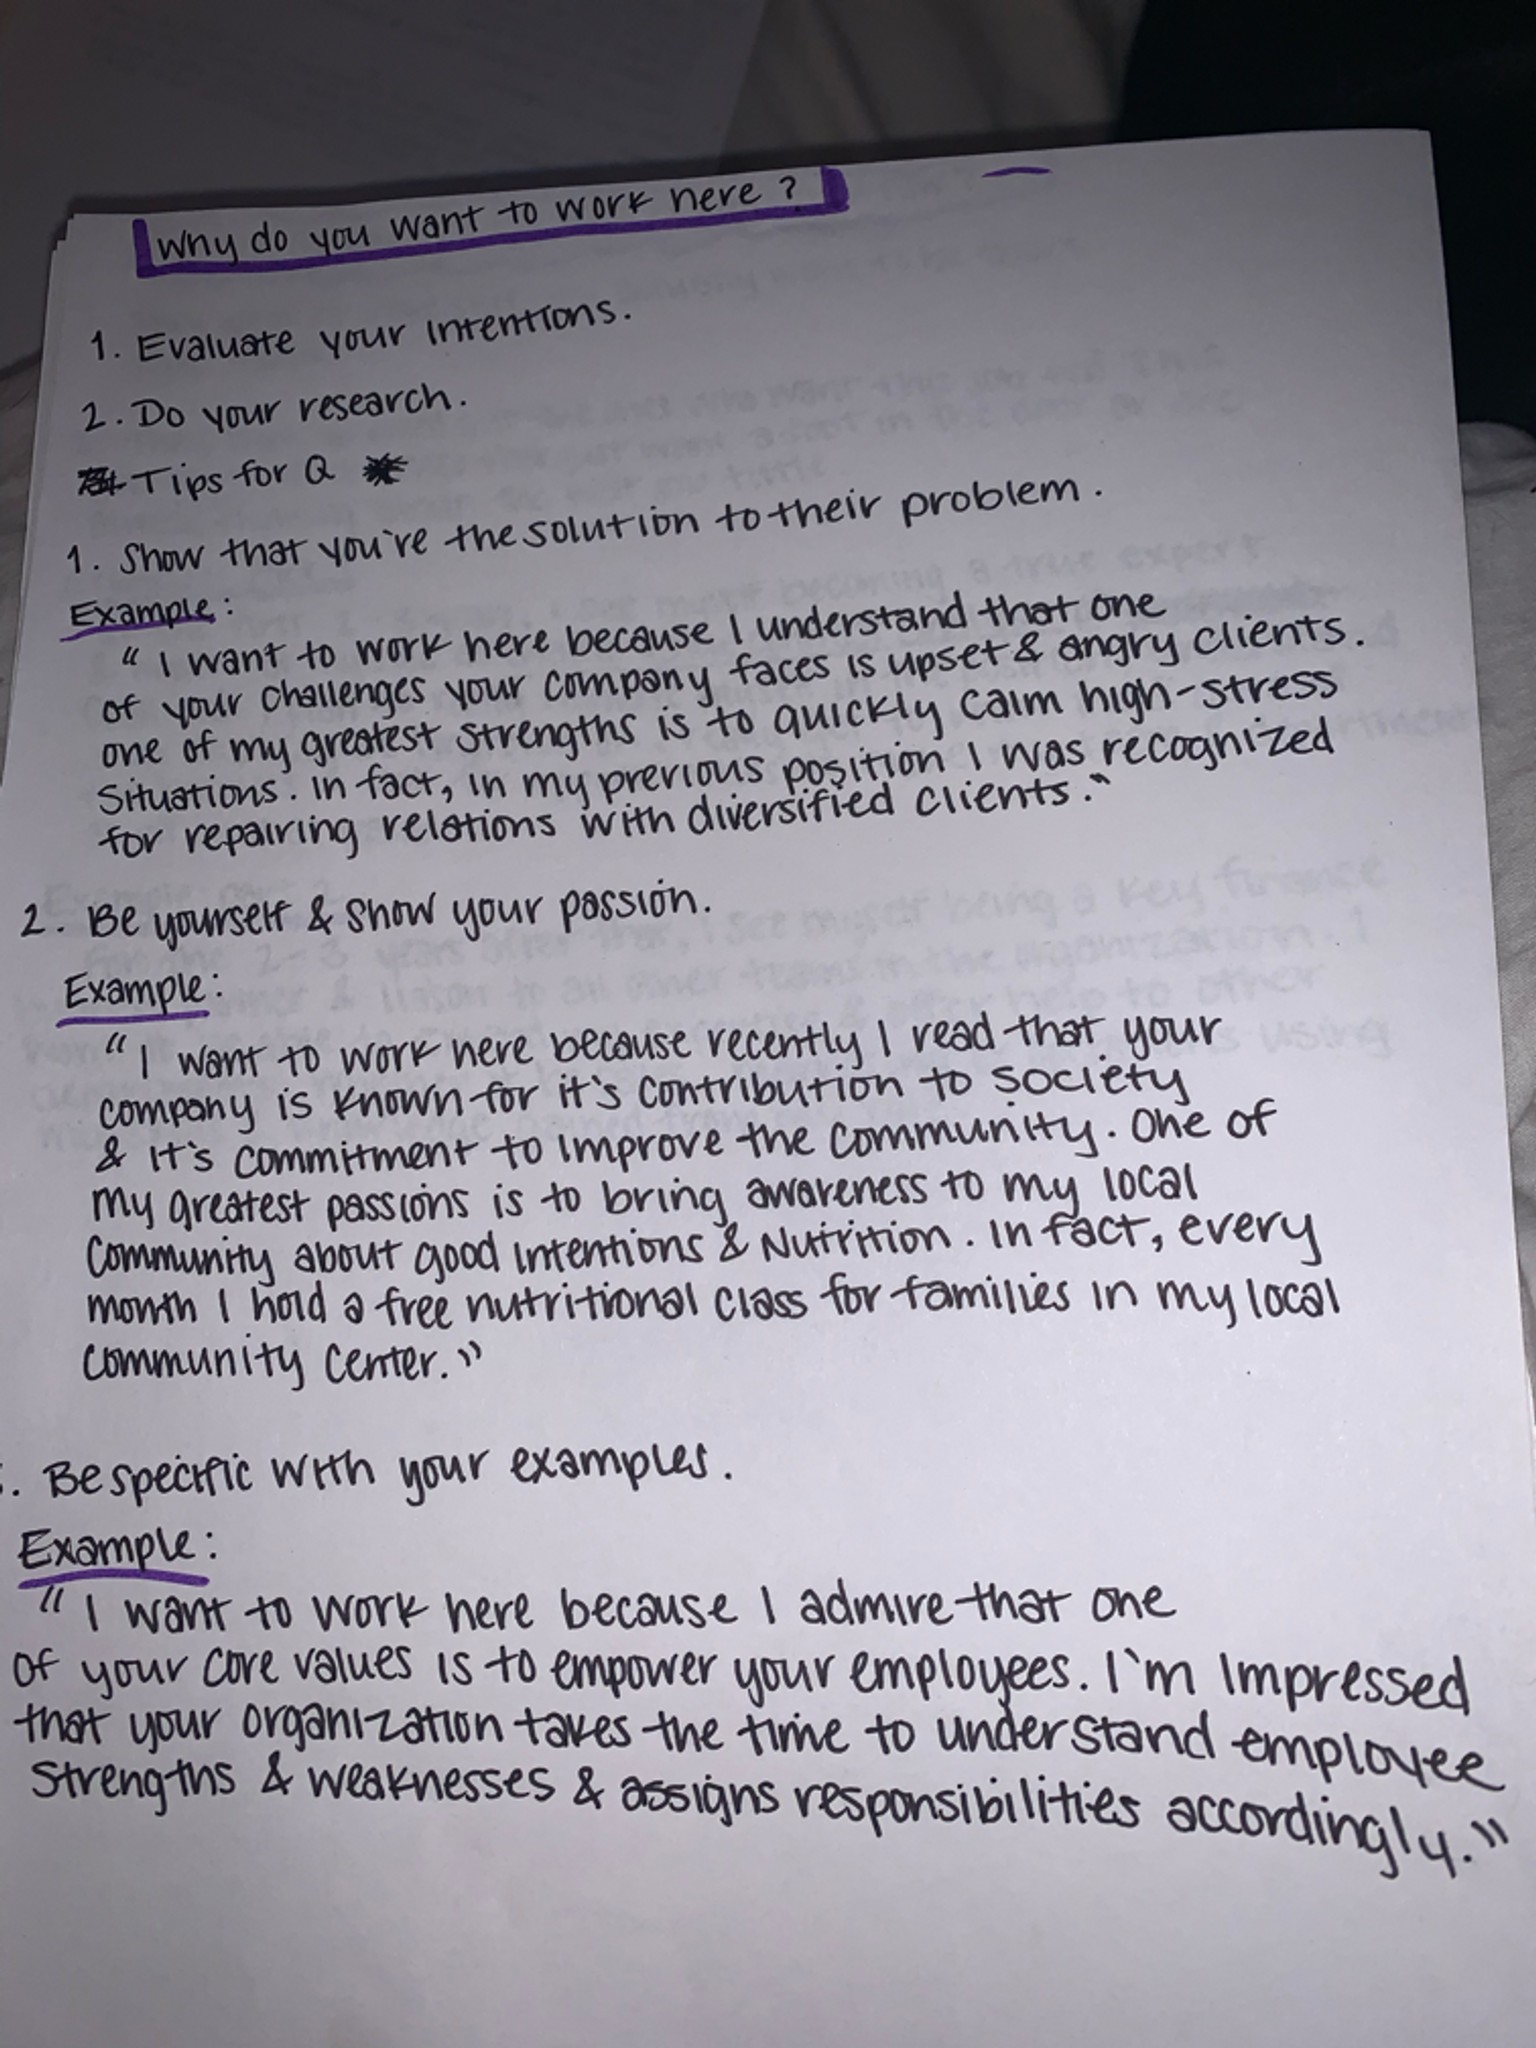 Why do you want to work here?
1. Evaluate your intentions.
2. Do your research.
Tips for Q
1. Show that you're the solution to their problem.
Example:
"I want to work here because I understand that one
of your challenges your company faces is upset & angry clients.
one of my greatest strengths is to quickly calm high-stress
situations. In fact, in my previous position I was recognized
for repairing relations with diversified clients."
2. Be yourself & show your passion.
Example:
"I want to work here because recently I read that your
company is known for it's contribution to society
& it's commitment to improve the community. One of
my greatest passions is to bring awareness to my local
community about good intentions & Nutrition. In fact, every
month I hold a free nutritional class for families in my local
community center."
. Be specific with your examples.
Example:
"I want to work here because I admire that one
of your core values is to empower your employees. I'm impressed
that your organization takes the time to understand employee
strengths & weaknesses & assigns responsibilities accordingly."